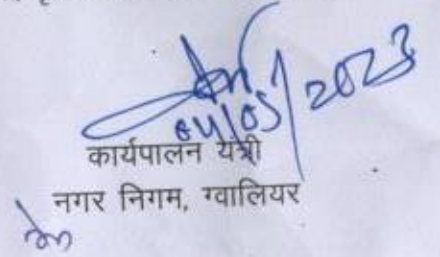 04/05/2023
कार्यपालन यंत्री
नगर निगम, ग्वालियर